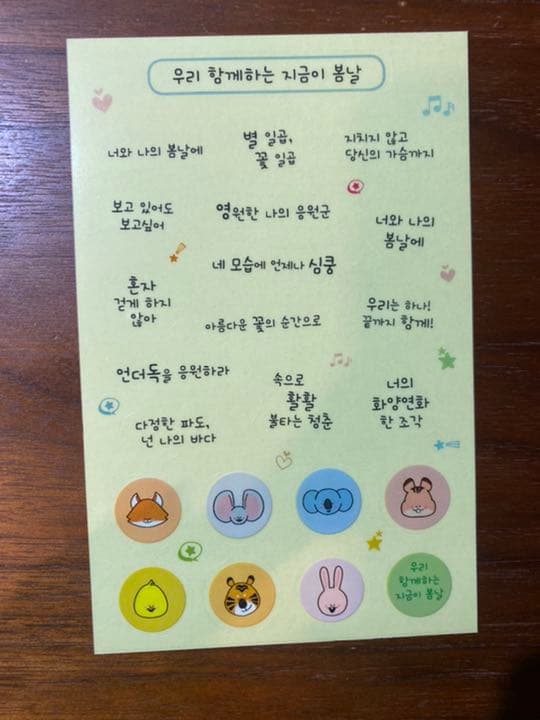 우리 함께하는 지금이 봄날
너와 나의 봄날에
별 일곱,
꽃 일곱
지치지 않고
당신의 가슴까지
보고 있어도
보고싶어
영원한 나의 응원군
너와 나의
봄날에
네 모습에 언제나 심쿵
혼자
걷게 하지
않아
아름다운 꽃의 순간으로
우리는 하나!
끝까지 함께!
언더독을 응원하라
속으로
활활
불타는 청춘
너의
화양연화
한 조각
다정한 파도,
넌 나의 바다
우리
함께하는
지금이 봄날